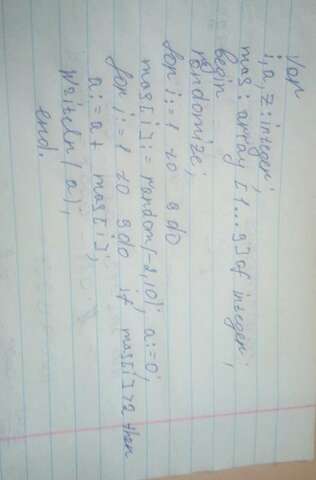 Var
i, a, z: integer;
mas: array [1...9] of integer;
begin
randomize;
for i:=1 to 9 do
mas[i]:= random(-2,10); a:=0;
for i:=1 to 9 do if mas[i]>2 then
a:=a+ mas[i];
writeln(a);
end.